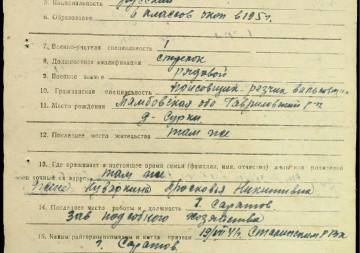 5. Национальность русский
6. Образование 6 классов окон в 195 г.
7. Военно-учетная специальность 1
8. Должностная квалификация стрелок
9. Военное звание рядовой
10. Гражданская специальность
11. Место рождения Тамбовская обл Гавриловский р-н
д. Сурки
12. Последнее место жительства там же
13. Где проживает в настоящее время семья (фамилия, имя, отчество)
там же
жена: Прасковья Никитична
14. Последнее место работы и должность г. Саратов
Зав подсобного хозяйства
15. Каким райвоенкоматом и когда призван Сталинским РВК
г. Саратов